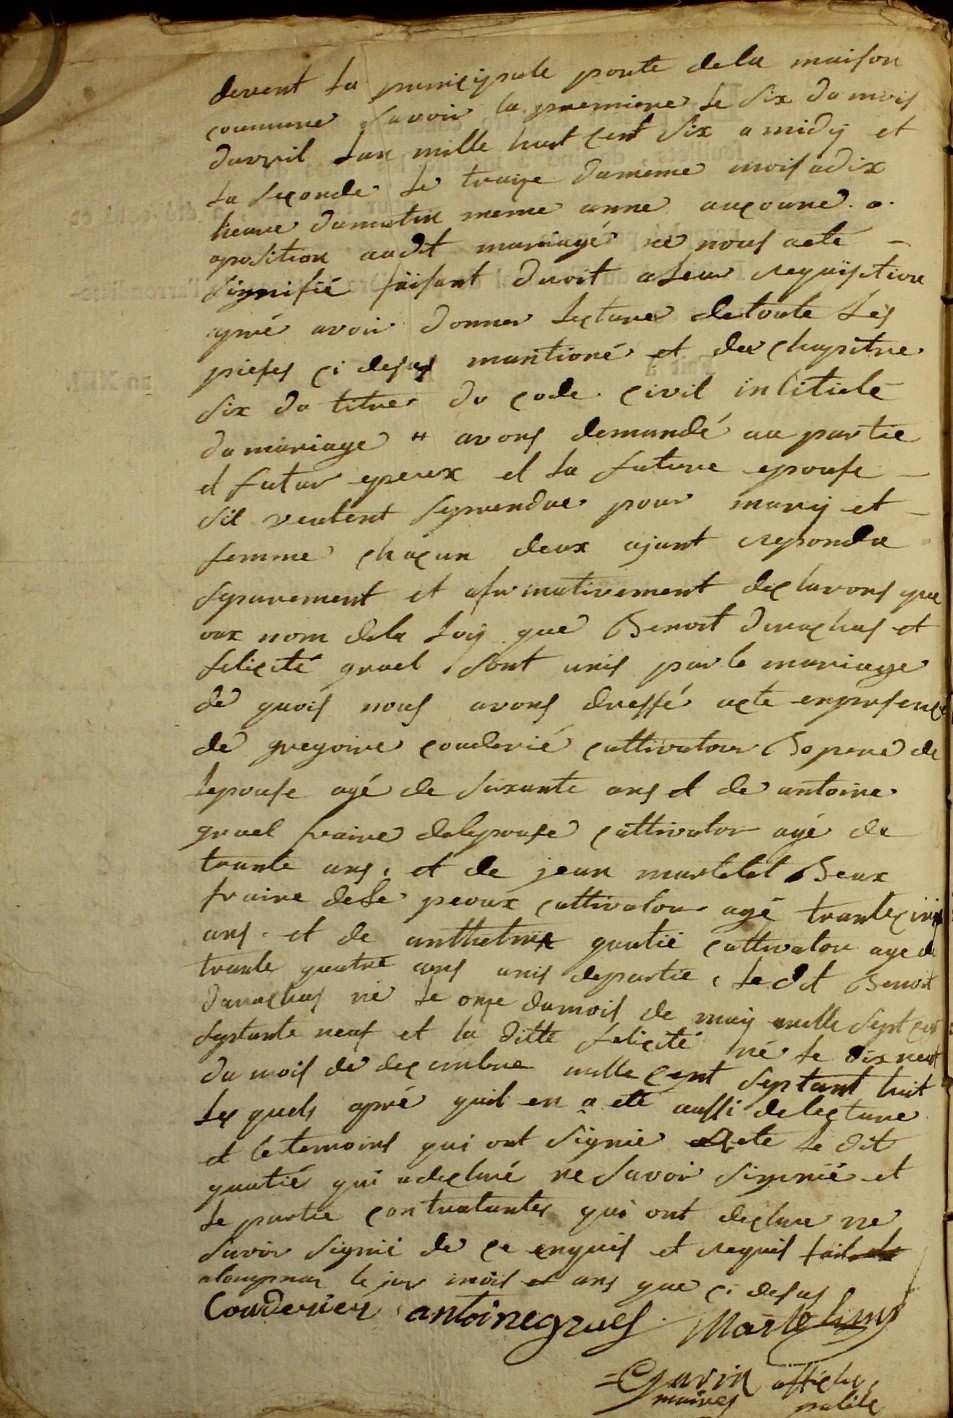 devent la principale porte dela maison
comune savoir la premiere le six du mois
davril lan mille huit cent six a midÿ et
la seconde le traize dumeme mois adix
heure dumatin meme anne aucoune . o .
oposition audit mariage ne nous aété –
signifié faisant droit aleur requisition
apré avoir donner lecture detoute les
pieses ci desus mantioné et du chapitre
six du titre du code civil intitulé
du mariage " avons demandé au partie
el futur epeux et la future epouse –
sil veulent seprendre pour marÿ et –
femme chacun deux ajant repondu
separement et afirmativement declarons que
aux nom dela loÿ que Benoit durachas et
felicité gruel sont unis par le mariage
de quois nous avons dressé acte enpresence
dé gregoire couderié cultivatour Bopere de
lepouse agé de soixante ans et de antoine
gruel fraire delepouse cultivator agé de
trante ans . et de jean martelet Beaux
fraire dele peoux cultivatour agé trante cinq
ans . et de anthelme quutié cultivatou age de
trante quatre ans amis departie , le dit Benoit
durachas né le onse dumois de maÿ mille sept cent
septante neuf et la ditte félicité né le dix neuf
du mois de decembre mille cent septant huit
les quels apré quil en a eté aussi delecture
et le temoins qui ont signié le dit
quutié qui a declaré ne savoir signié et
le partie contratantes qui ont declare ne
savoir signié de ce enquis et requis fait
le jour mois et ans que ci desus
Couderier antoinegruel Martelin
maires